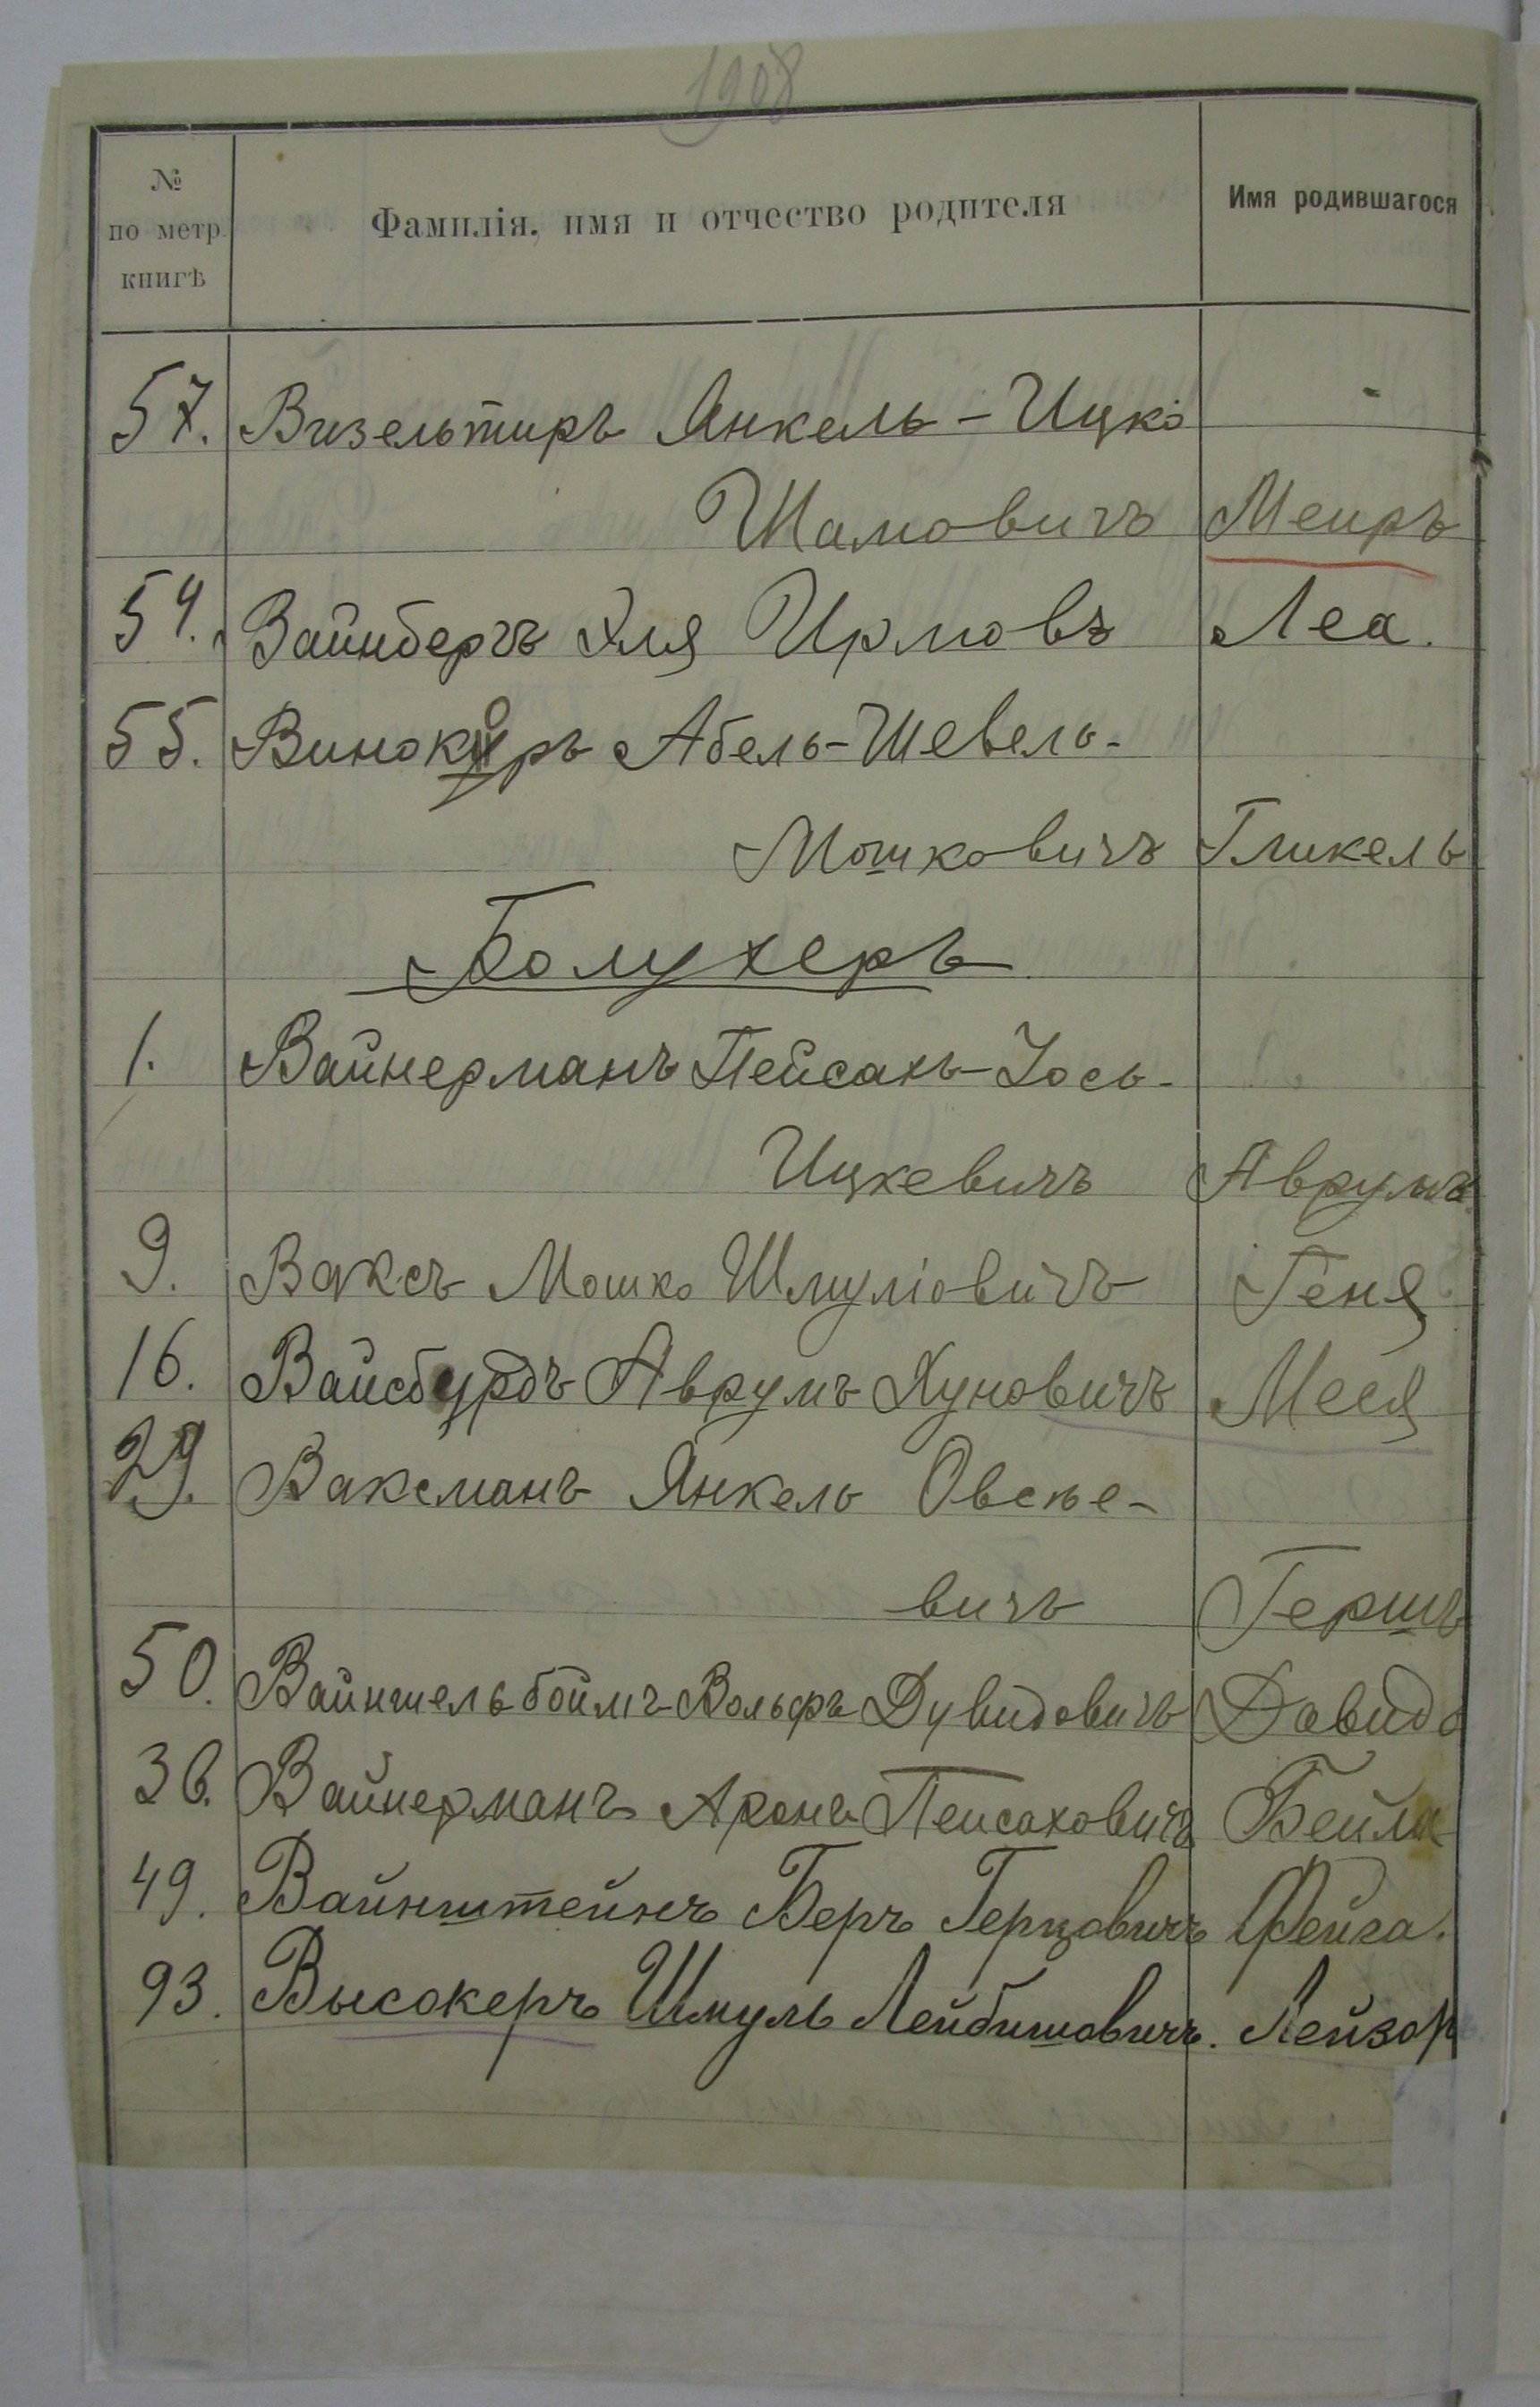 1908
№ по метр. книгѣ Фамилія, имя и отчество родителя Имя родившагося
57. Визельтиръ Янкель-Ицко -
Шамовичъ Меиръ
54. Вайнбергъ Эля Ирмовъ Леа.
55. Винокуръ Абель-Шевель-
Мошковичъ Гликель
Болухеръ
1. Вайнерманъ Пейсахъ-Іось-
Ицкевичъ Аврумъ
9. Ваксъ Мошко Шмуліовичъ Геня
16. Вайсбурдъ Аврумъ Хуновичъ Меся
29. Ваксманъ Янкель Овсѣе-
вичъ Гершъ
50. Вайншельбоймъ Вольфъ Дувидовичъ Давидъ
36. Вайнерманъ Аронъ Пейсаховичъ Бейла
49. Вайнштейнъ Беръ Герцовичъ Фейга.
93. Высокеръ Шмуль Лейбишовичъ. Лейзор